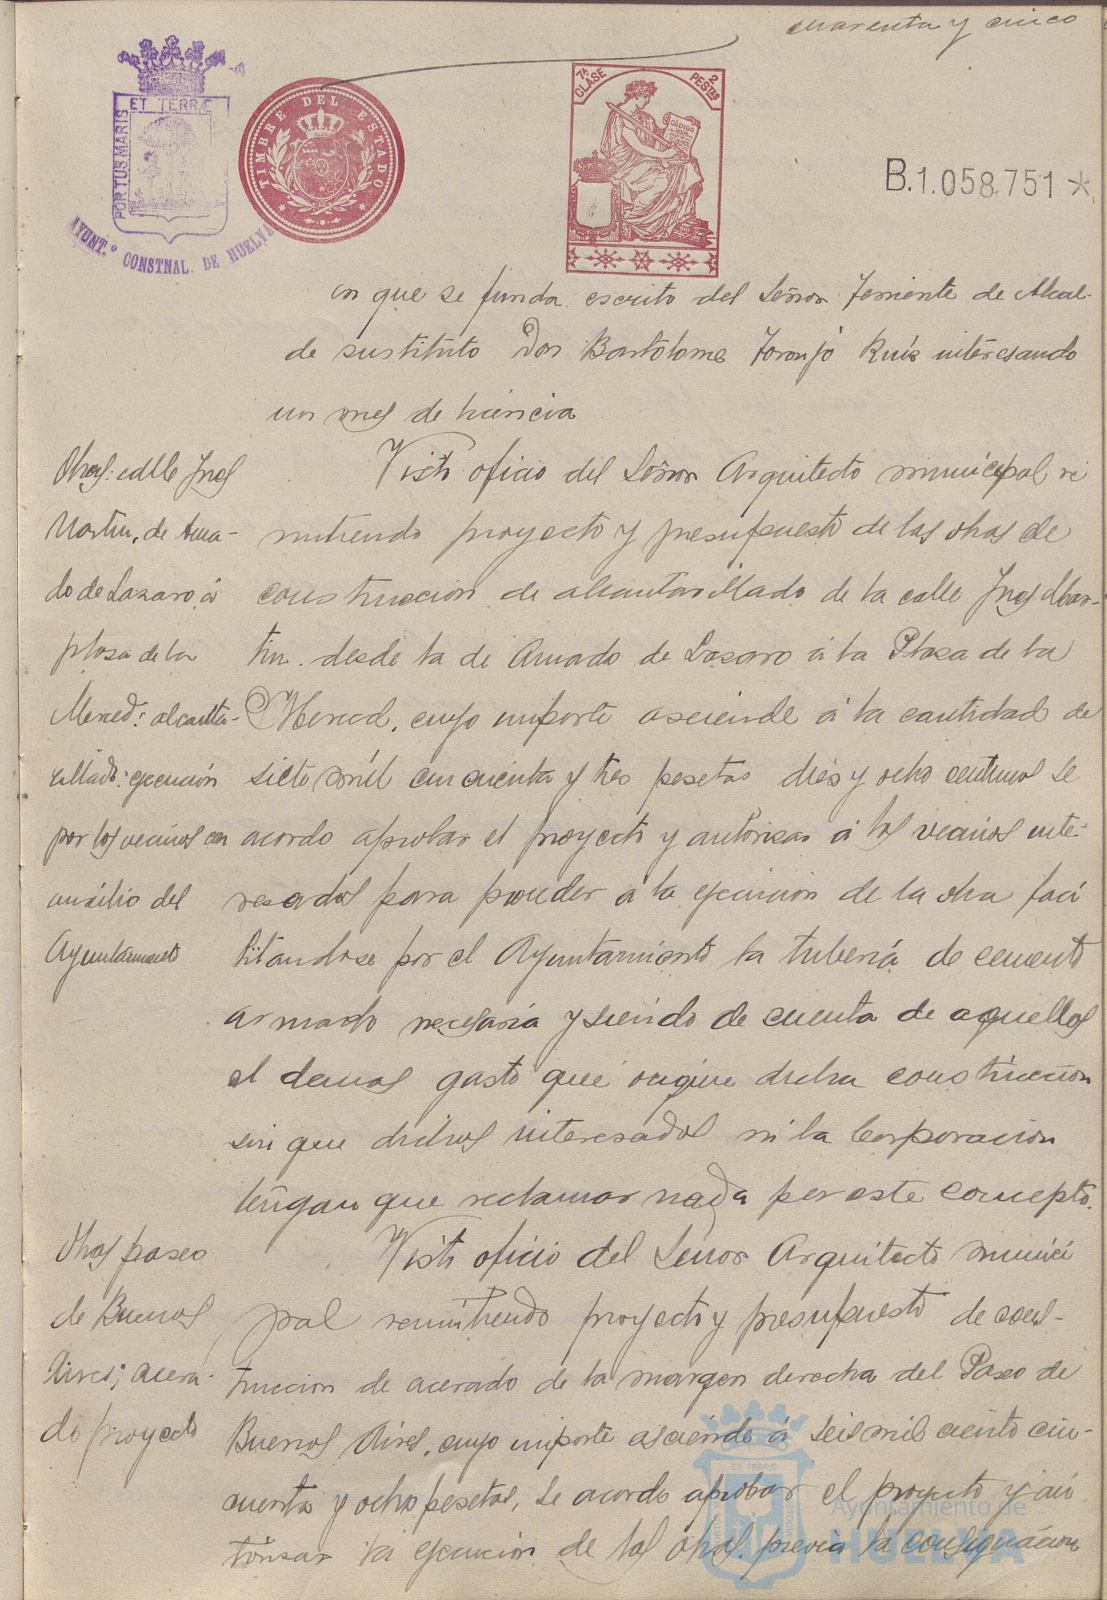 cuarenta y cinco
ET TERRÆ
PORTUS MARIS
AYUNT.º CONSTNAL. DE HUELVA
TIMBRE DEL ESTADO
7ª CLASE
2 PESTAS
CÓDIGO
B.1.058.751 *
en que se funda escrito del Señor Teniente de Alcal-
de sustituto Don Bartolome Toronjo Ruiz interesando
un mes de licencia
Obras: calle Ines
Martin, de Ama-
do de Lazaro, á
plaza de la
Merced: alcanta-
rillado: ejecución
por los vecinos con
auxilio del
Ayuntamiento
Visto oficio del Señor Arquitecto municipal re
mitiendo proyecto y presupuesto de las obras de
construcción de alcantarillado de la calle Ines Mar-
tin. desde la de Amado de Lazaro á la Plaza de la
Merced, cuyo importe asciende á la cantidad de
siete mil cincuenta y tres pesetas dies y ocho centimos se
acordo aprobar el proyecto y autorizar á los vecinos inte-
resados para proceder á la ejecución de la obra faci
litandose por el Ayuntamiento la tuberia de cemento
armado necesaria y siendo de cuenta de aquellos
el demas gasto que origine dicha construccion
sin que dichos interesados ni la Corporacion
tengan que reclamar nada por este concepto.
Obras paseo
de Buenos
Aires; acera-
do proyecto
Visto oficio del Señor Arquitecto munici
pal remitiendo proyecto y presupuesto de cons-
truccion de acerado de la margen derecha del Paseo de
Buenos Aires, cuyo importe asciende á seis mil ciento cin-
cuenta y ocho pesetas, se acordo aprobar el proyecto y au
torisar la ejecución de las obras previa la consignacion
ET TERRÆ
Ayuntamiento de
HUELVA